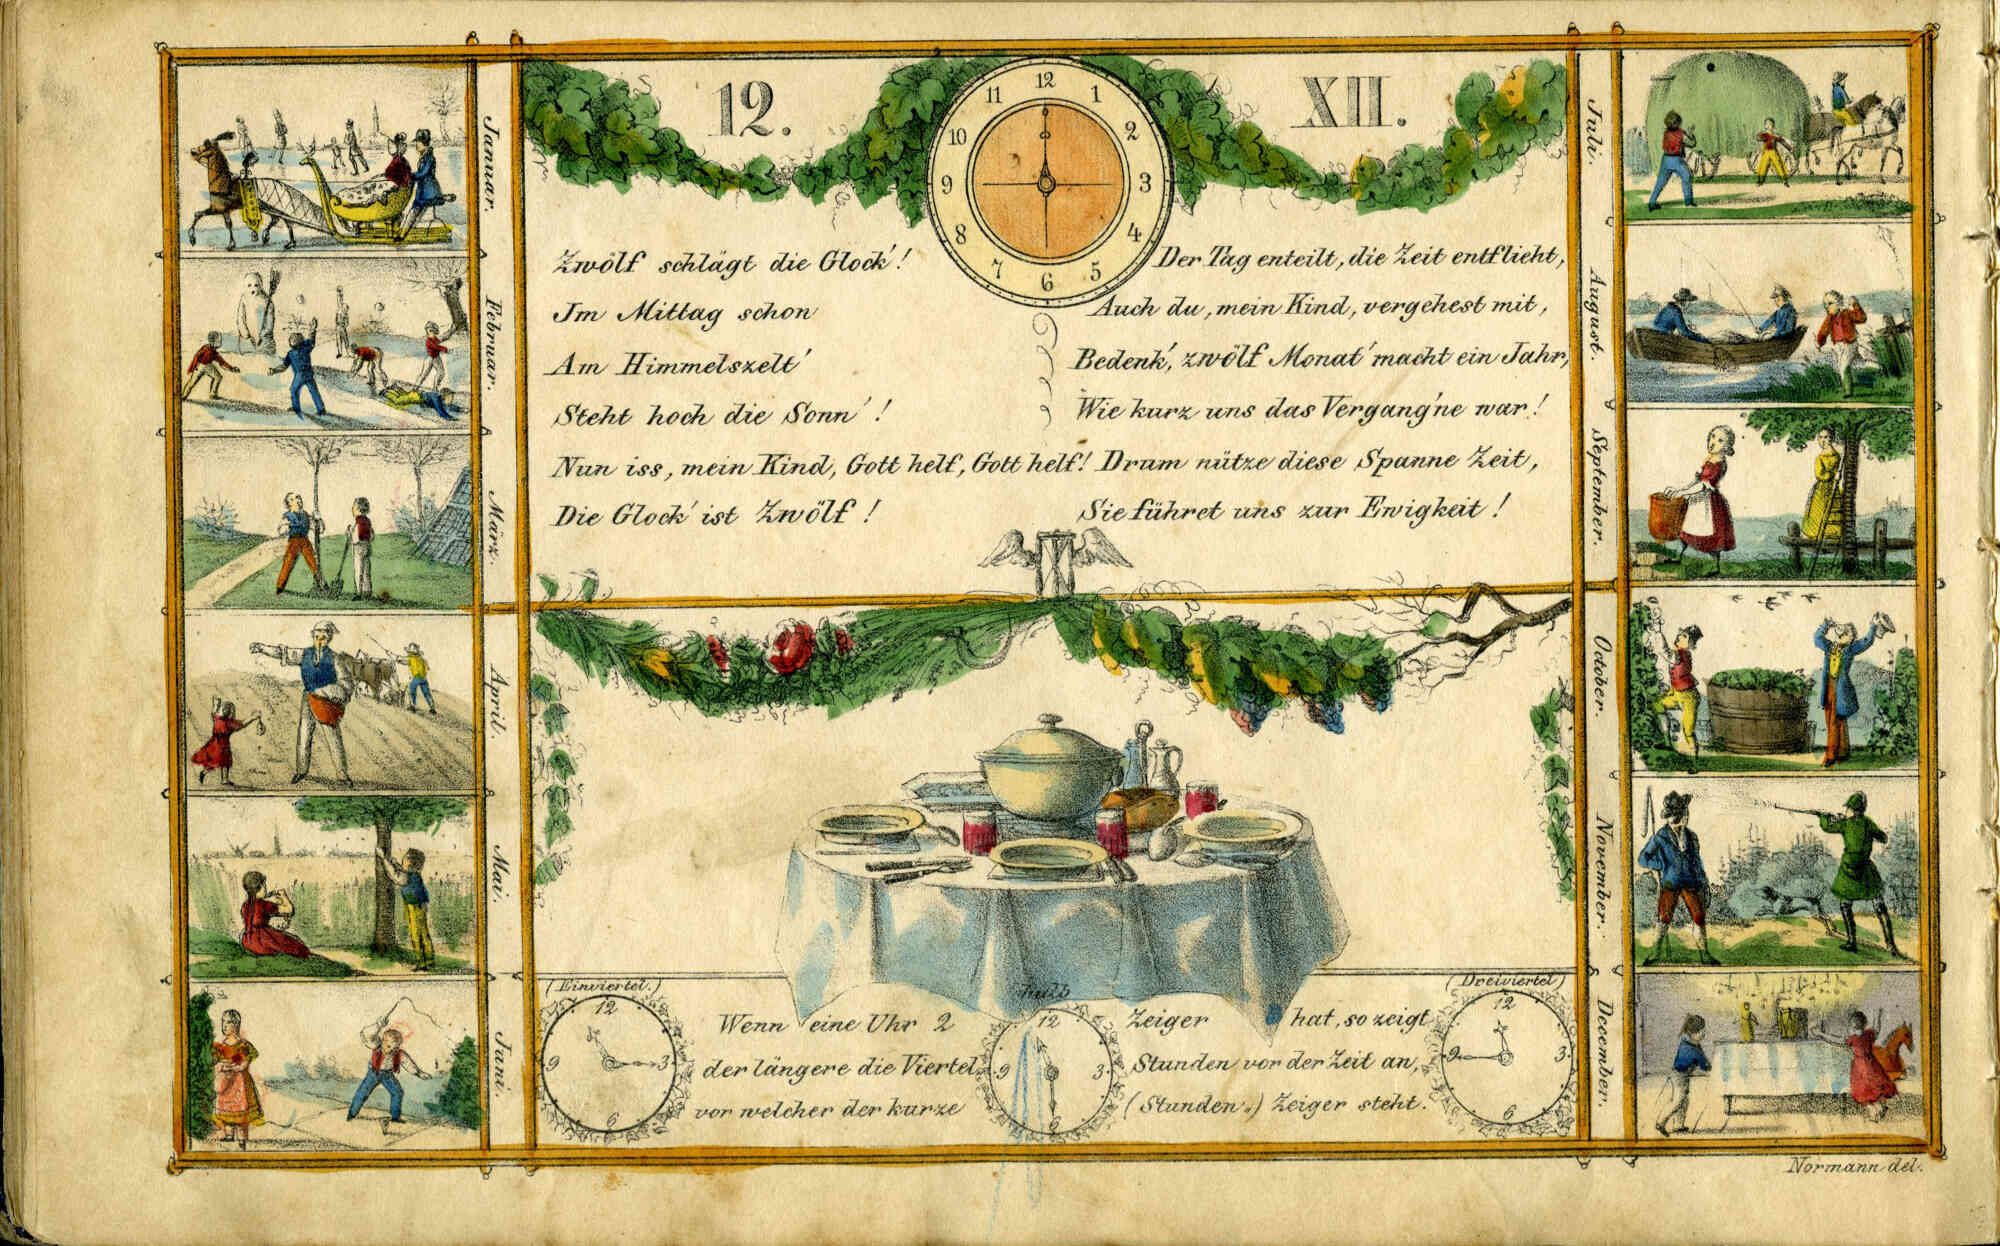 12.
XII.
12
1
2
3
4
5
6
7
8
9
10
11
Zwölf schlägt die Glock'!
Im Mittag schon
Am Himmelszelt'
Steht hoch die Sonn'!
Nun iss, mein Kind, Gott helf, Gott helf!
Die Glock' ist Zwölf!
Der Tag enteilt, die Zeit entflieht,
Auch du, mein Kind, vergehest mit,
Bedenk', zwölf Monat' macht ein Jahr,
Wie kurz uns das Vergang'ne war!
Drum nütze diese Spanne Zeit,
Sie führet uns zur Ewigkeit!
Januar.
Februar.
März.
April.
Mai.
Juni.
Juli.
August.
September.
October.
November.
December.
(Einviertel.)
12
3
6
9
halb
12
3
6
9
(Dreiviertel)
12
3
6
9
Wenn eine Uhr 2 Zeiger hat, so zeigt
der längere die Viertel Stunden vor der Zeit an,
vor welcher der kurze (Stunden.) Zeiger steht.
Normann del.